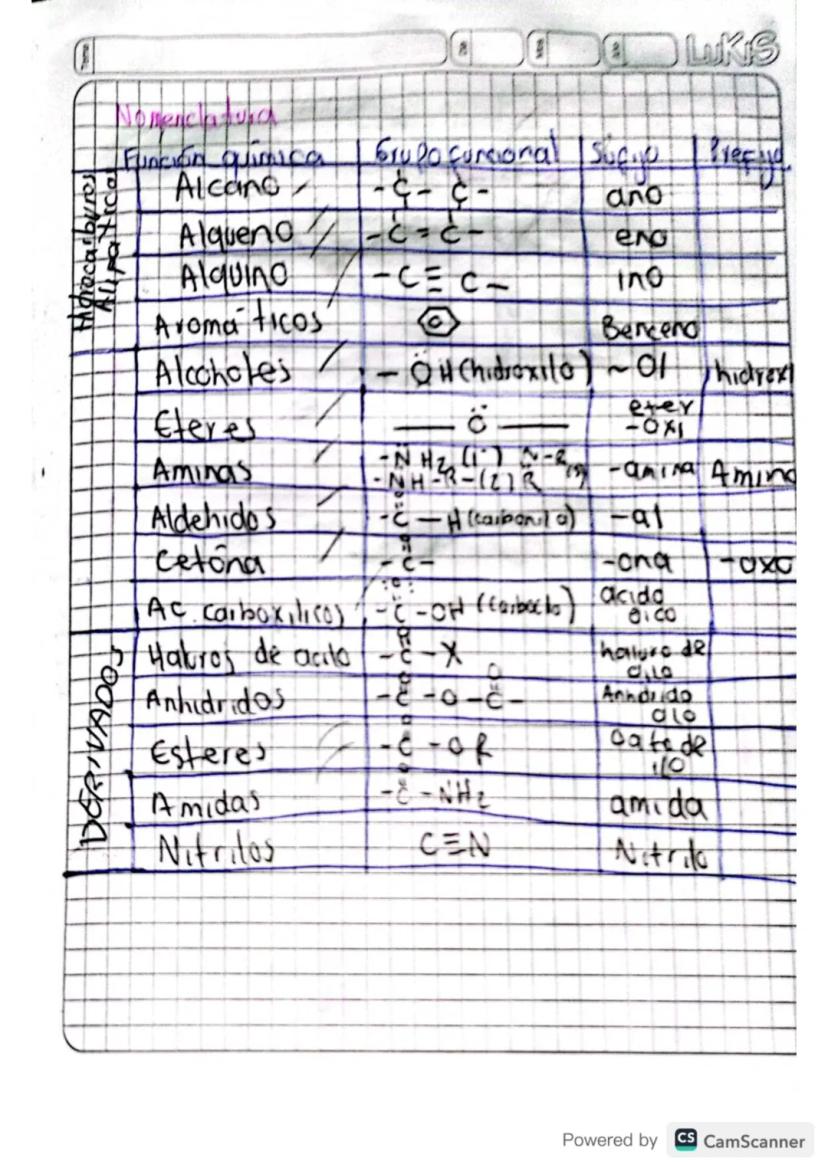 LUKIS
Nomenclatura
Función química Grupo funcional Sufijo Prefijo
Hidrocarburos
Alifáticos
Alcano -C-C- ano
Alqueno -C=C- eno
Alquino -C≡C- ino
Aromáticos Benceno
Alcoholes -ÖH (hidroxilo) ~Ol hidroxi
Eteres —Ö— eter
-oxi
Aminas -NH2 (1°) N-R -amina Amino
-NH-R-(2) R (3)
Aldehidos -C-H (carbonilo) -al
Cetona -C- -ona -oxo
Ac. carboxilicos -C-OH (carboxilo) acido
oico
DERIVADOS
Haluros de acilo -C-X haluro de
ilo
Anhidridos -C-O-C- Anhidrido
Esteres -C-OR oato de
ilo
Amidas -C-NH2 amida
Nitrilos C≡N Nitrilo
Powered by CS CamScanner